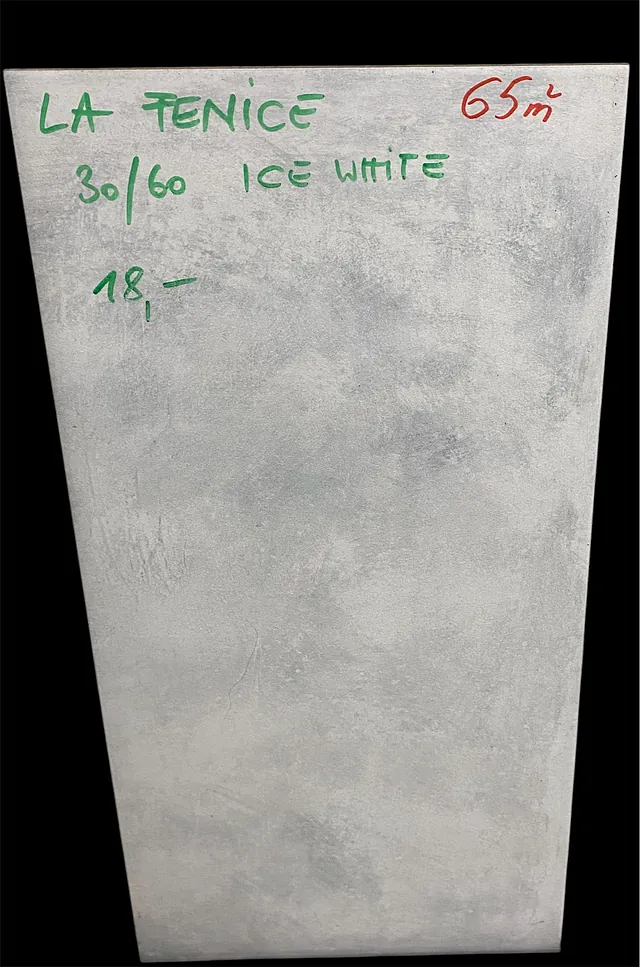 LA FENICE 65m²
30/60 ICE WHITE
18,-